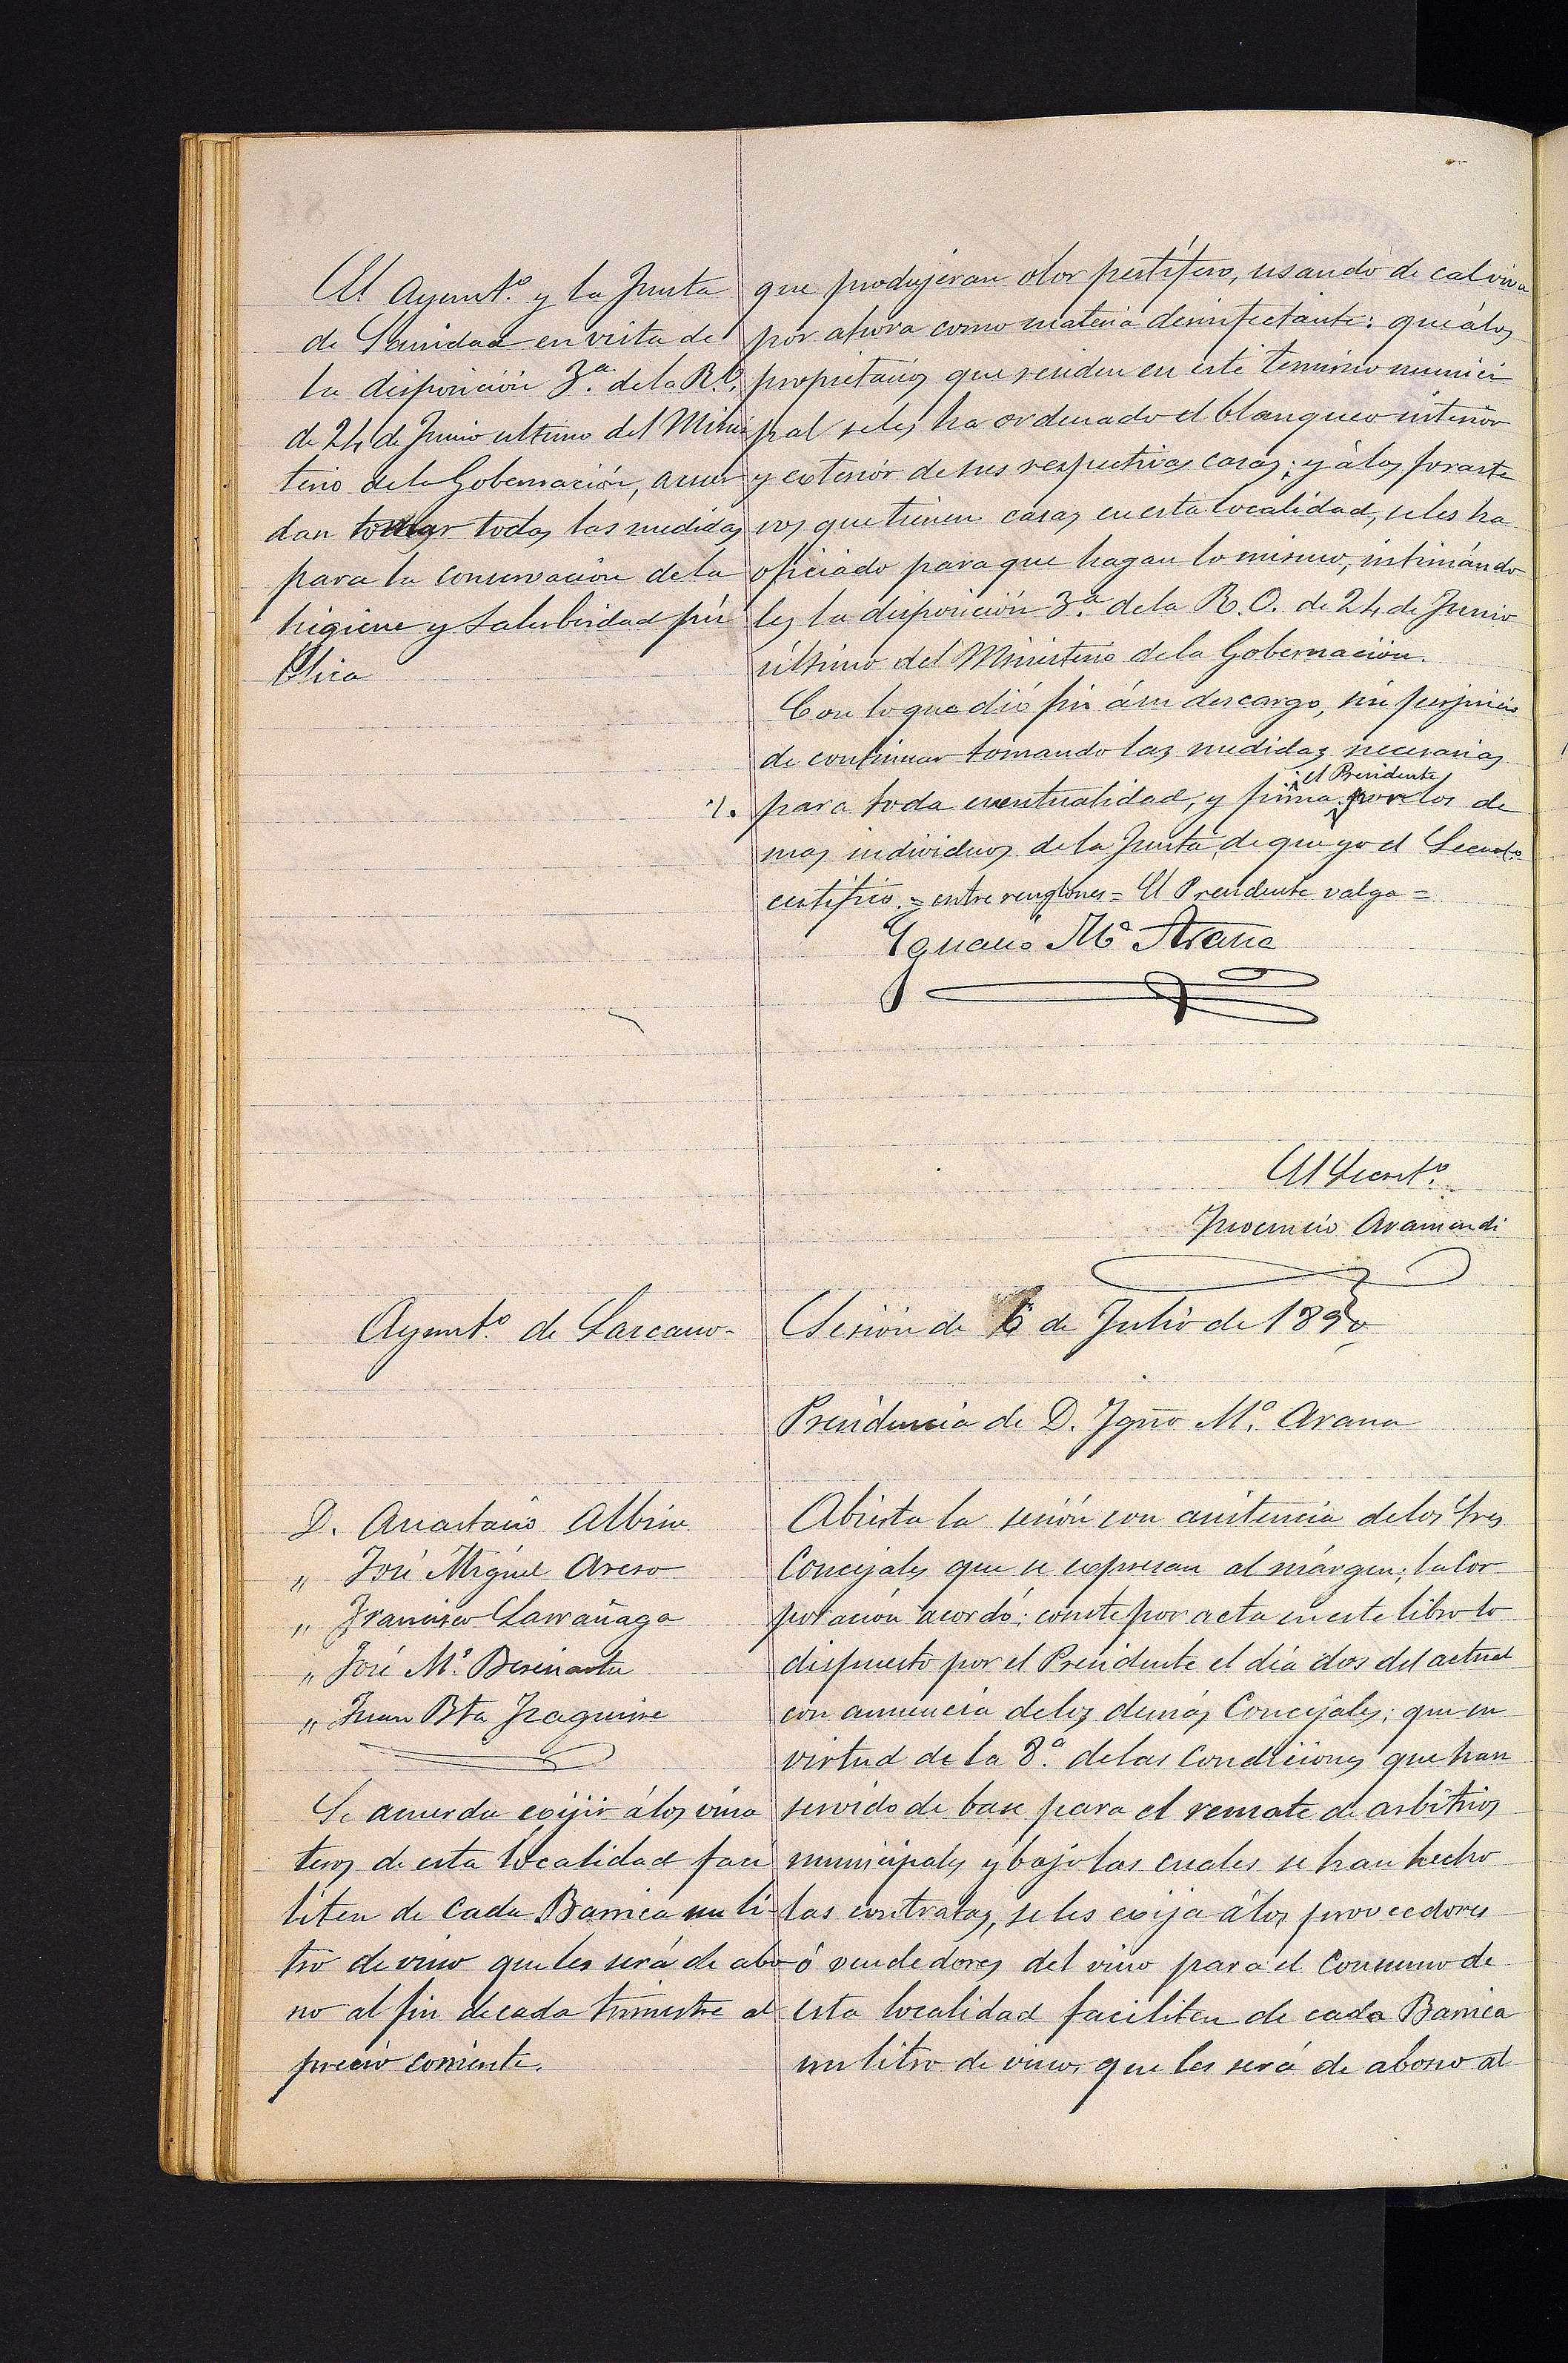 El Ayunt.º y la Junta
de Sanidad en vista de
la disposición 3.ª de la R.O.
de 24 de Junio ultimo del Minis
terio de la Gobernación, acuer
dan tomar todas las medidas
para la conservación de la
higiene y salubridad pú
blica
que produjeran olor pestífero, usando de cal viva
por ahora como materia desinfectante: que á los
propietarios que residen en este termino munici
pal se les ha ordenado el blanqueo interior
y exterior de sus respectivas casas; y á los foraste
ros que tienen casas en esta localidad, se les ha
oficiado para que hagan lo mismo, intimándo
les la disposición 3.ª de la R.O. de 24 de Junio
último del Ministerio de la Gobernación.
Con lo que dió fin á su descargo, sin perjuicio
de continuar tomando las medidas necesarias
el Presidente
para toda eventualidad, y firma por los de
mas individuos de la Junta, de que yo el Secret.º
certifico. = entre renglones = El Presidente valga =
Ygnacio Mª Arana
El Secret.º
Inocencio Aramendi
Ayunt.º de Lazcano-
Sesión de 6 de Julio de 1890
Presidencia de D. Ygnº Mª. Arana
D. Anastasio Albisu
" José Miguel Areso
" Francisco Larrañaga
" José Mª. Beseinartu
" Juan Bta Izaguirre
Se acuerda exijir á los vina
teros de esta localidad faci
liten de cada Barrica un li-
tro de vino que les será de abo
no al fin de cada trimestre al
precio corriente.
Abierta la sesión con asistencia de los Sres
Concejales que se expresan al márgen; la Cor
poración acordó: conste por acta en este libro lo
dispuesto por el Presidente el día dos del actual
con anuencia de los demás Concejales; que en
virtud de la 8.ª de las Condiciones que han
servido de base para el remate de arbitrios
municipales y bajo las cuales se han hecho
las contratas, se les exija á los proveedores
ó vendedores del vino para el Consumo de
esta localidad faciliten de cada Barrica
un litro de vino, que les será de abono al